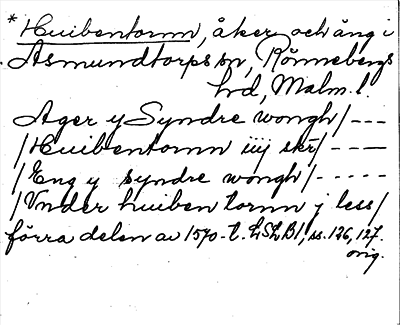 * Huibentornn, åker och äng i
Asmundtorps sn, Rönnebergs
hd, Malm. l.
Ager y Syndre wongh/---
/Huibentornn iiij skr/---
/Eng y syndre wongh/-----
/Vnder huiben tornn j less/
förra delen av 1570-t. LSLB1, ss. 126, 127.
orig.